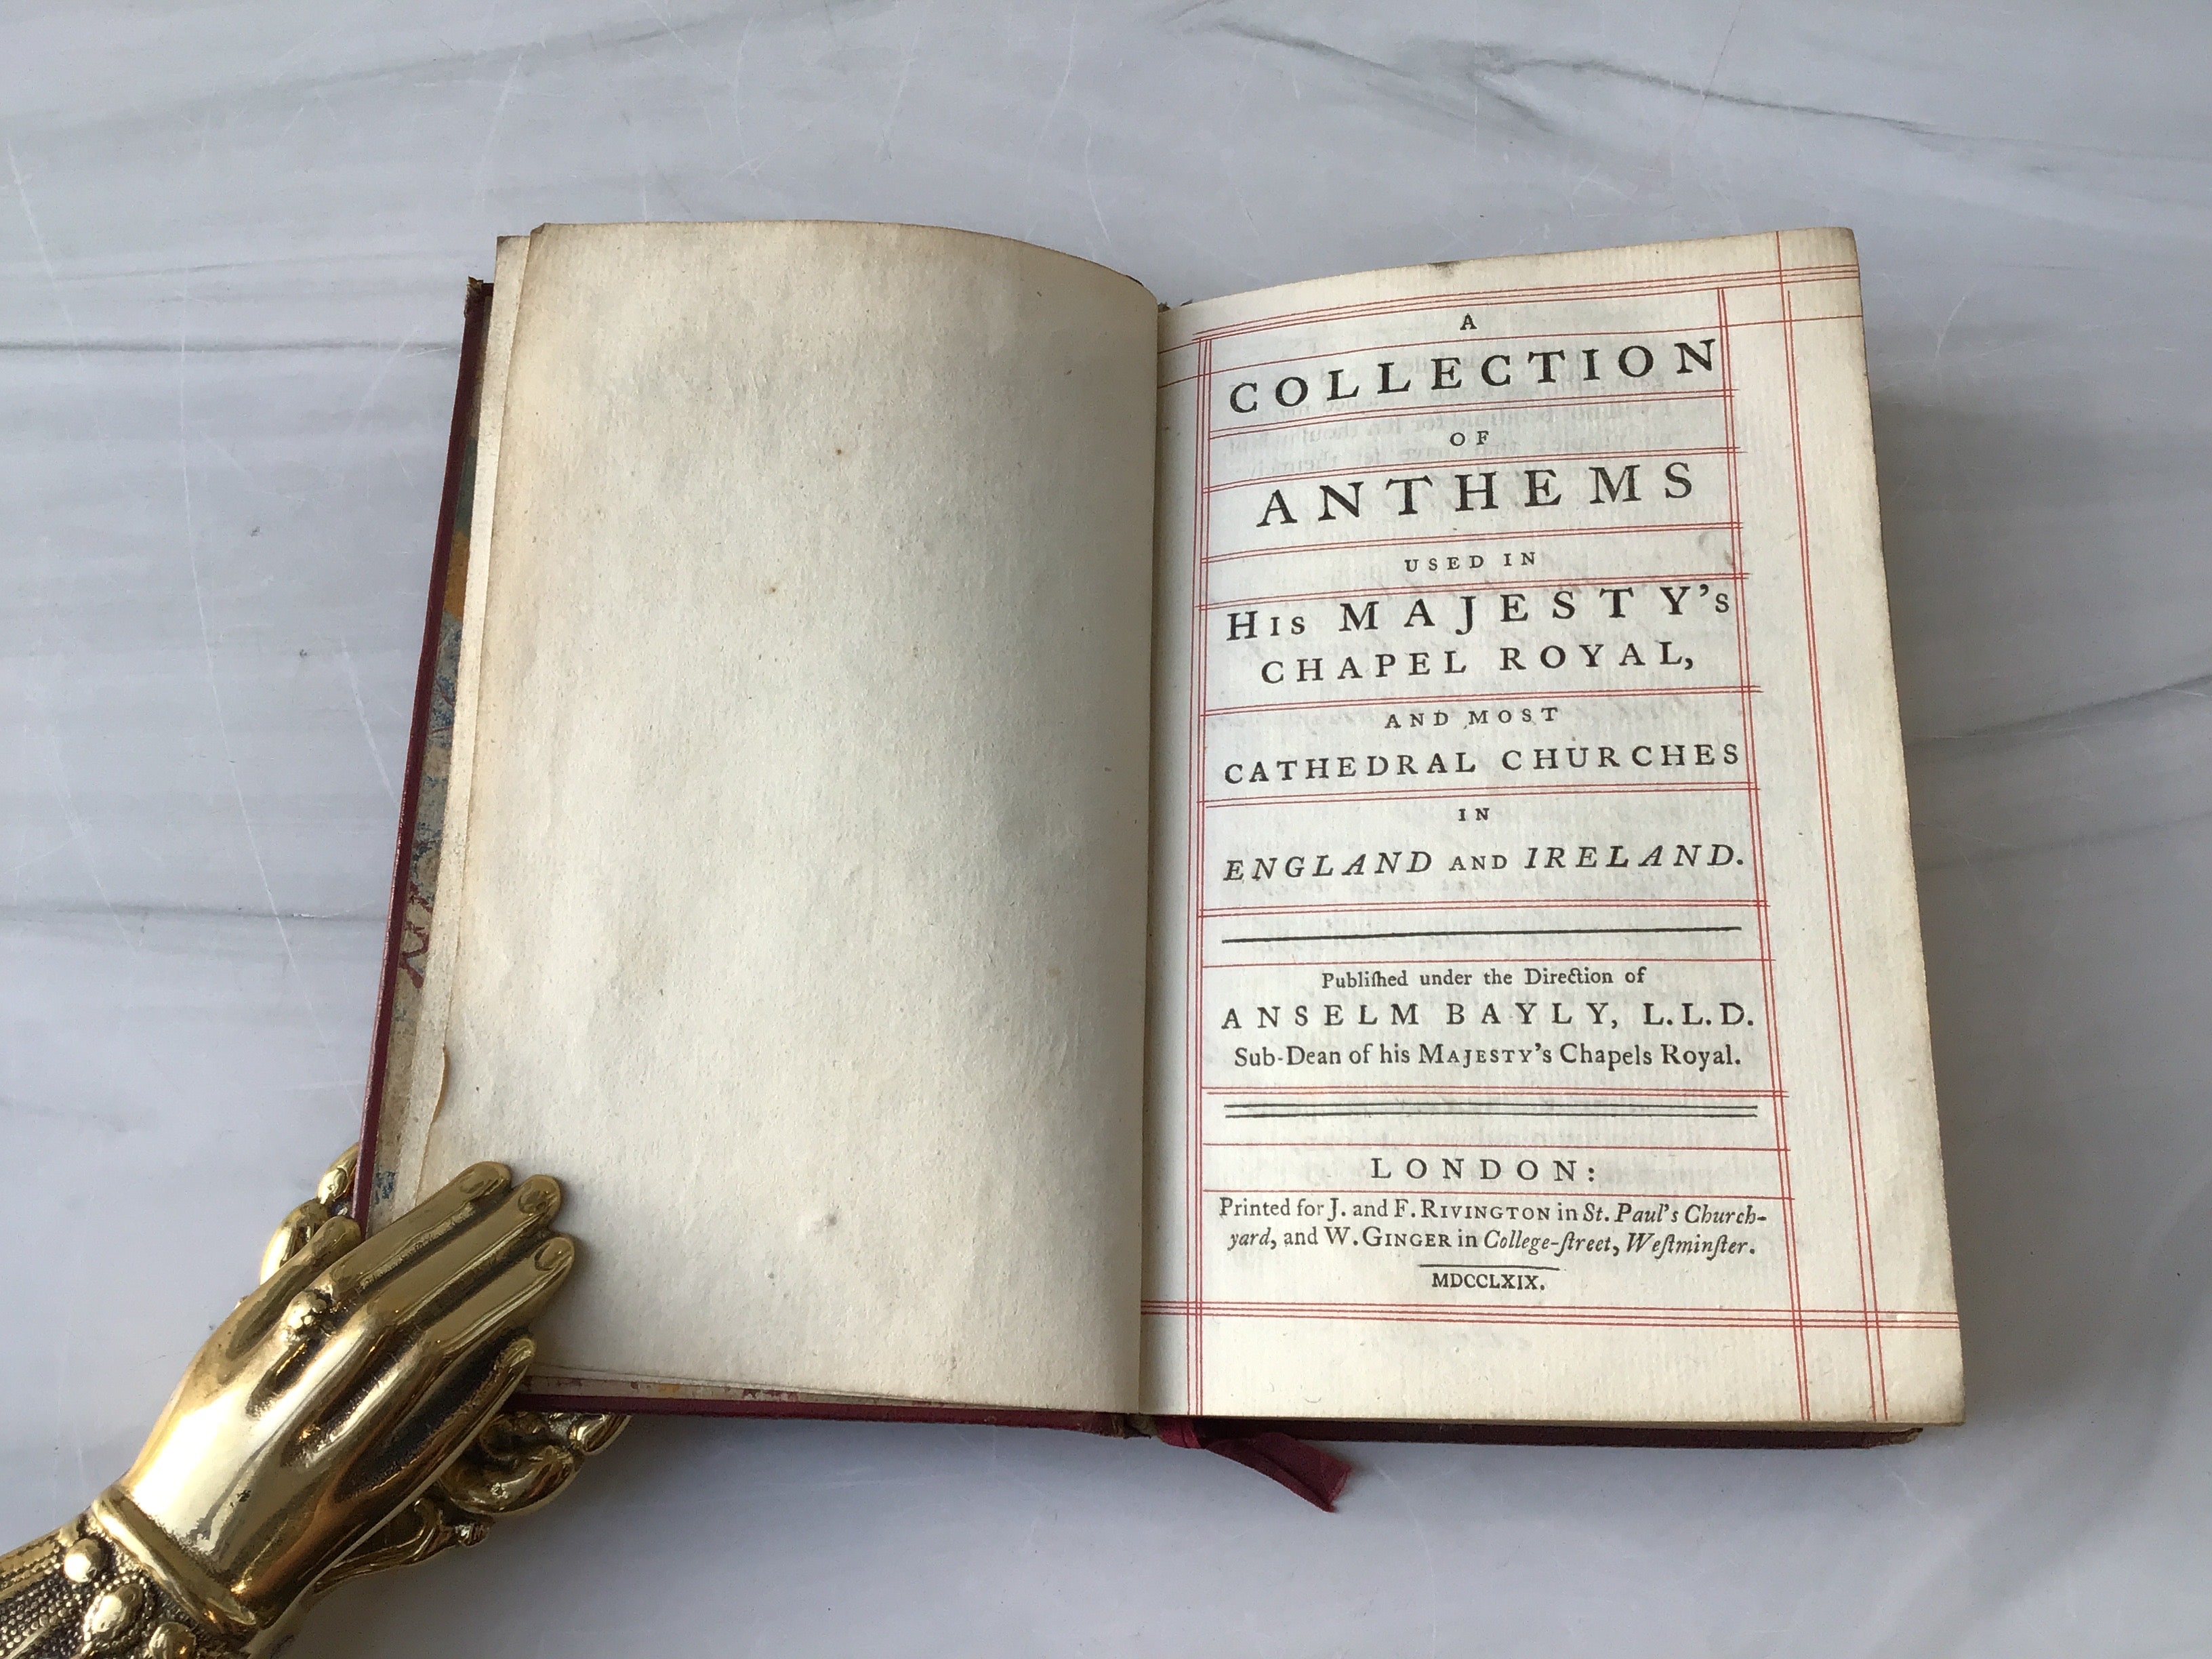 A
COLLECTION
OF
ANTHEMS
USED IN
HIS MAJESTY's
CHAPEL ROYAL,
AND MOST
CATHEDRAL CHURCHES
IN
ENGLAND AND IRELAND.
Publiſhed under the Direction of
ANSELM BAYLY, L.L.D.
Sub-Dean of his MAJESTY's Chapels Royal.
LONDON:
Printed for J. and F. RIVINGTON in St. Paul's Church-
yard, and W. GINGER in College-ſtreet, Weſtminſter.
MDCCLXIX.